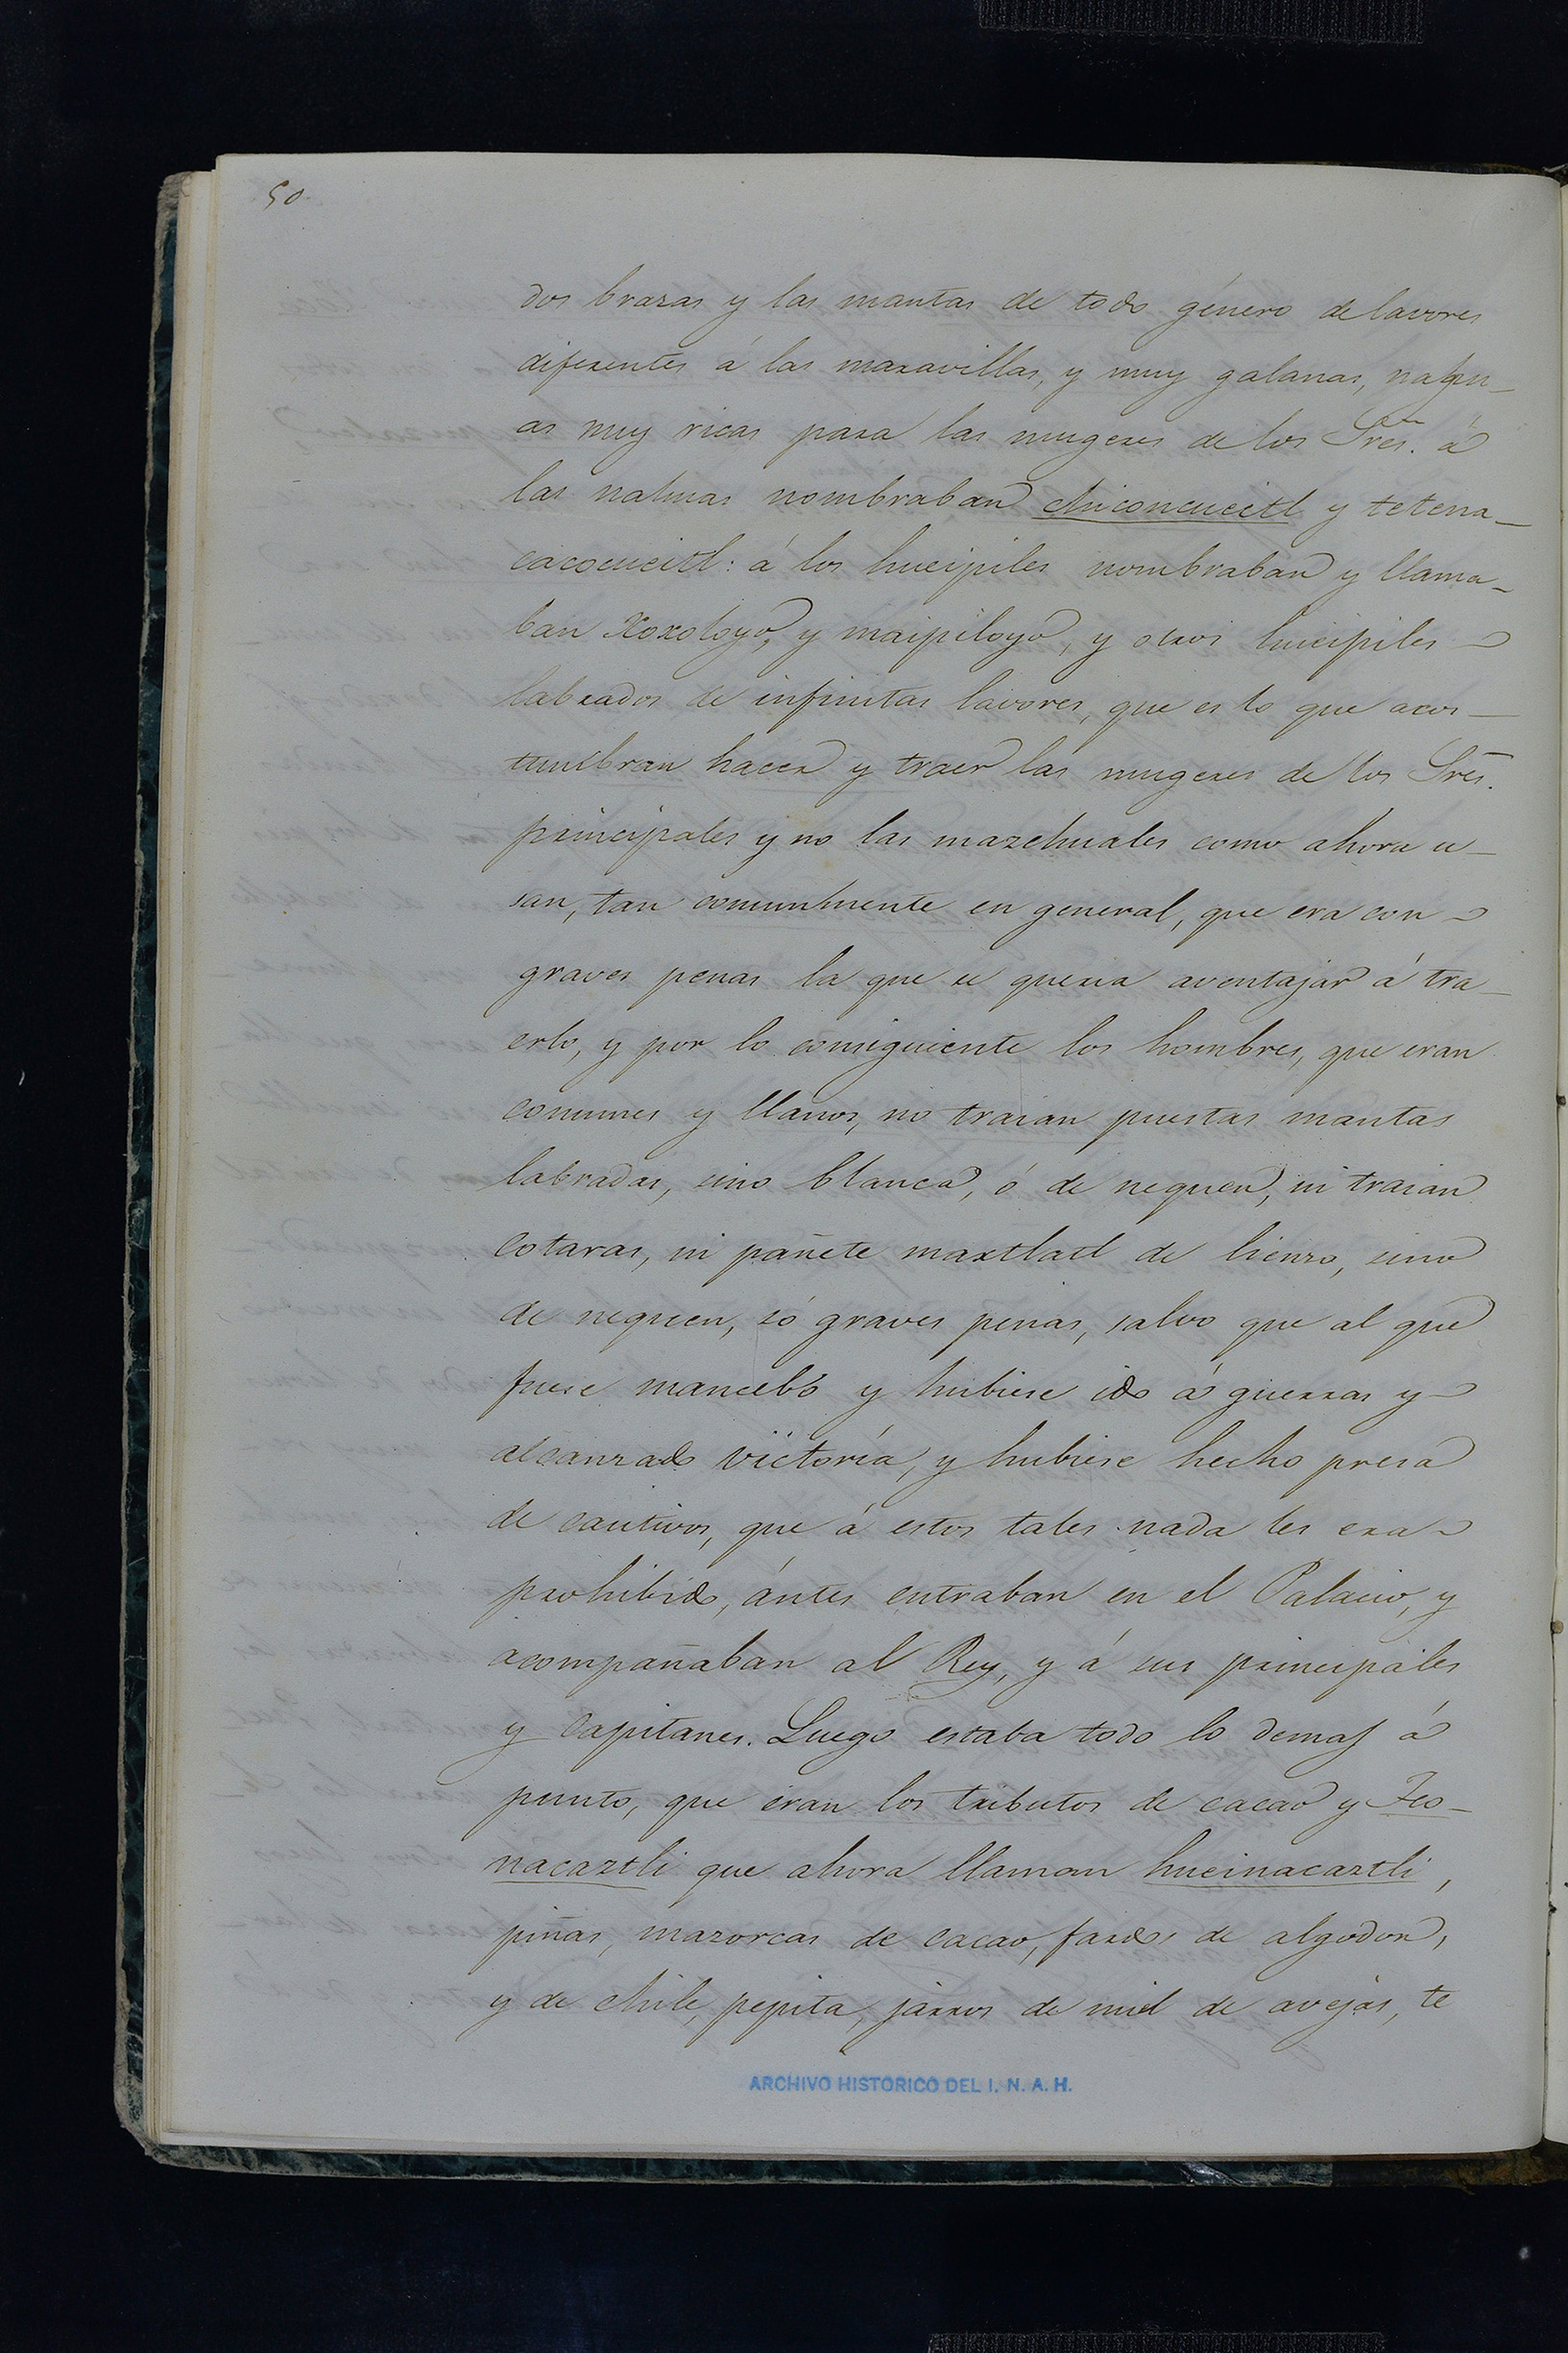 50
dos brazas y las mantas de todo género de lavores
diferentes á las maravillas, y muy galanas, nahu-
as muy ricas para las mugeres de los Sres. á
las nahuas nombraban chiconcueitl y tetena-
cacocueitl: á los hueipiles nombraban y llama-
ban Xoxoloyo, y maipiloyo, y otros hueipiles
labrados de infinitas lavores, que es lo que acos-
tumbran hacer y traer las mugeres de los Sres.
principales y no las mazehuales como ahora u-
san, tan comunmente en general, que era con
graves penas la que se queria aventajar á tra-
erlo, y por lo consiguiente los hombres, que eran
comunes y llanos, no traian puestas mantas
labradas, sino blanca, ó de nequen, ni traian
cotaras, ni pañete maxtlatl de lienzo, sino
de nequen, só graves penas, salvo que al que
fuese mancebo y hubiese ido á guerras y
alcanzado victoria, y hubiese hecho presa
de cautivos, que á estos tales nada les era
prohibido, ántes entraban en el Palacio, y
acompañaban al Rey, y á sus principales
y Capitanes. Luego estaba todo lo demas á
punto, que eran los tributos de cacao y Teo-
nacaztli que ahora llaman hueinacaztli,
piñas, mazorcas de cacao, fardos de algodon,
y de chile, pepita, jarros de miel de avejas, te
ARCHIVO HISTORICO DEL I. N. A. H.